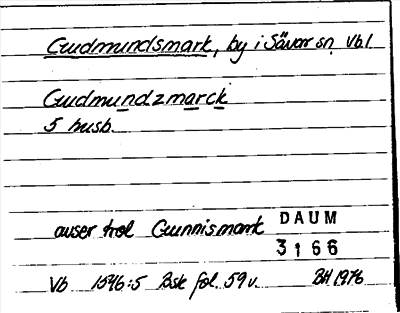 Gudmundsmark, by i Sävar sn, Vb.l
Gudmundzmarck
5 husb.
avser trol Gunnismark DAUM
3166
Vb 1546:5 Bsk fol. 59v. BH 1976